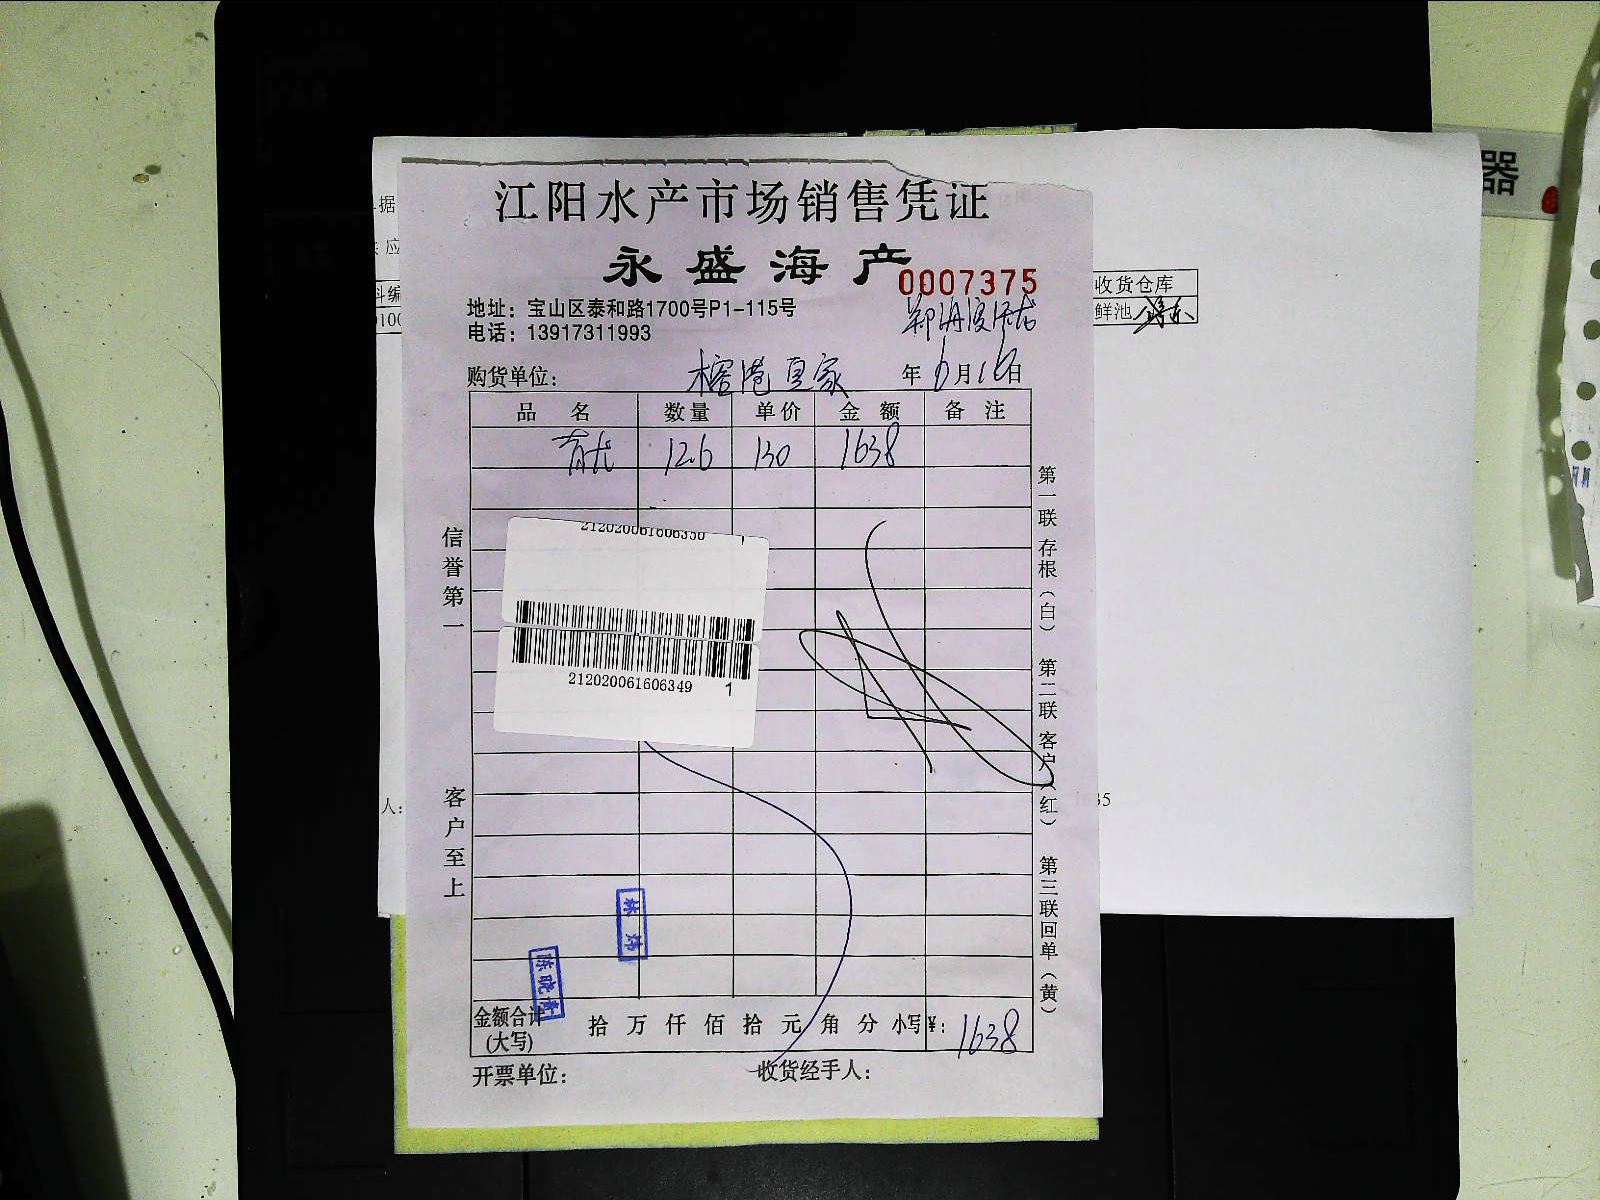 江阳水产市场销售凭证
永盛海产
0007375
地址：宝山区泰和路1700号P1-115号
电话：13917311993
购货单位： 榕港皇家 年 6月16日
品 名 数量 单价 金 额 备 注
青龙 12.6 130 1638
信誉第一
客户至上
212020061606350 1
212020061606349 1
第一联 存根（白） 第二联 客户（红） 第三联回单（黄）
林炜
陈晓青
金额合计 拾 万 仟 佰 拾 元 角 分 小写¥： 1638
(大写)
开票单位： 收货经手人：
收货仓库
鲜池
器
人：